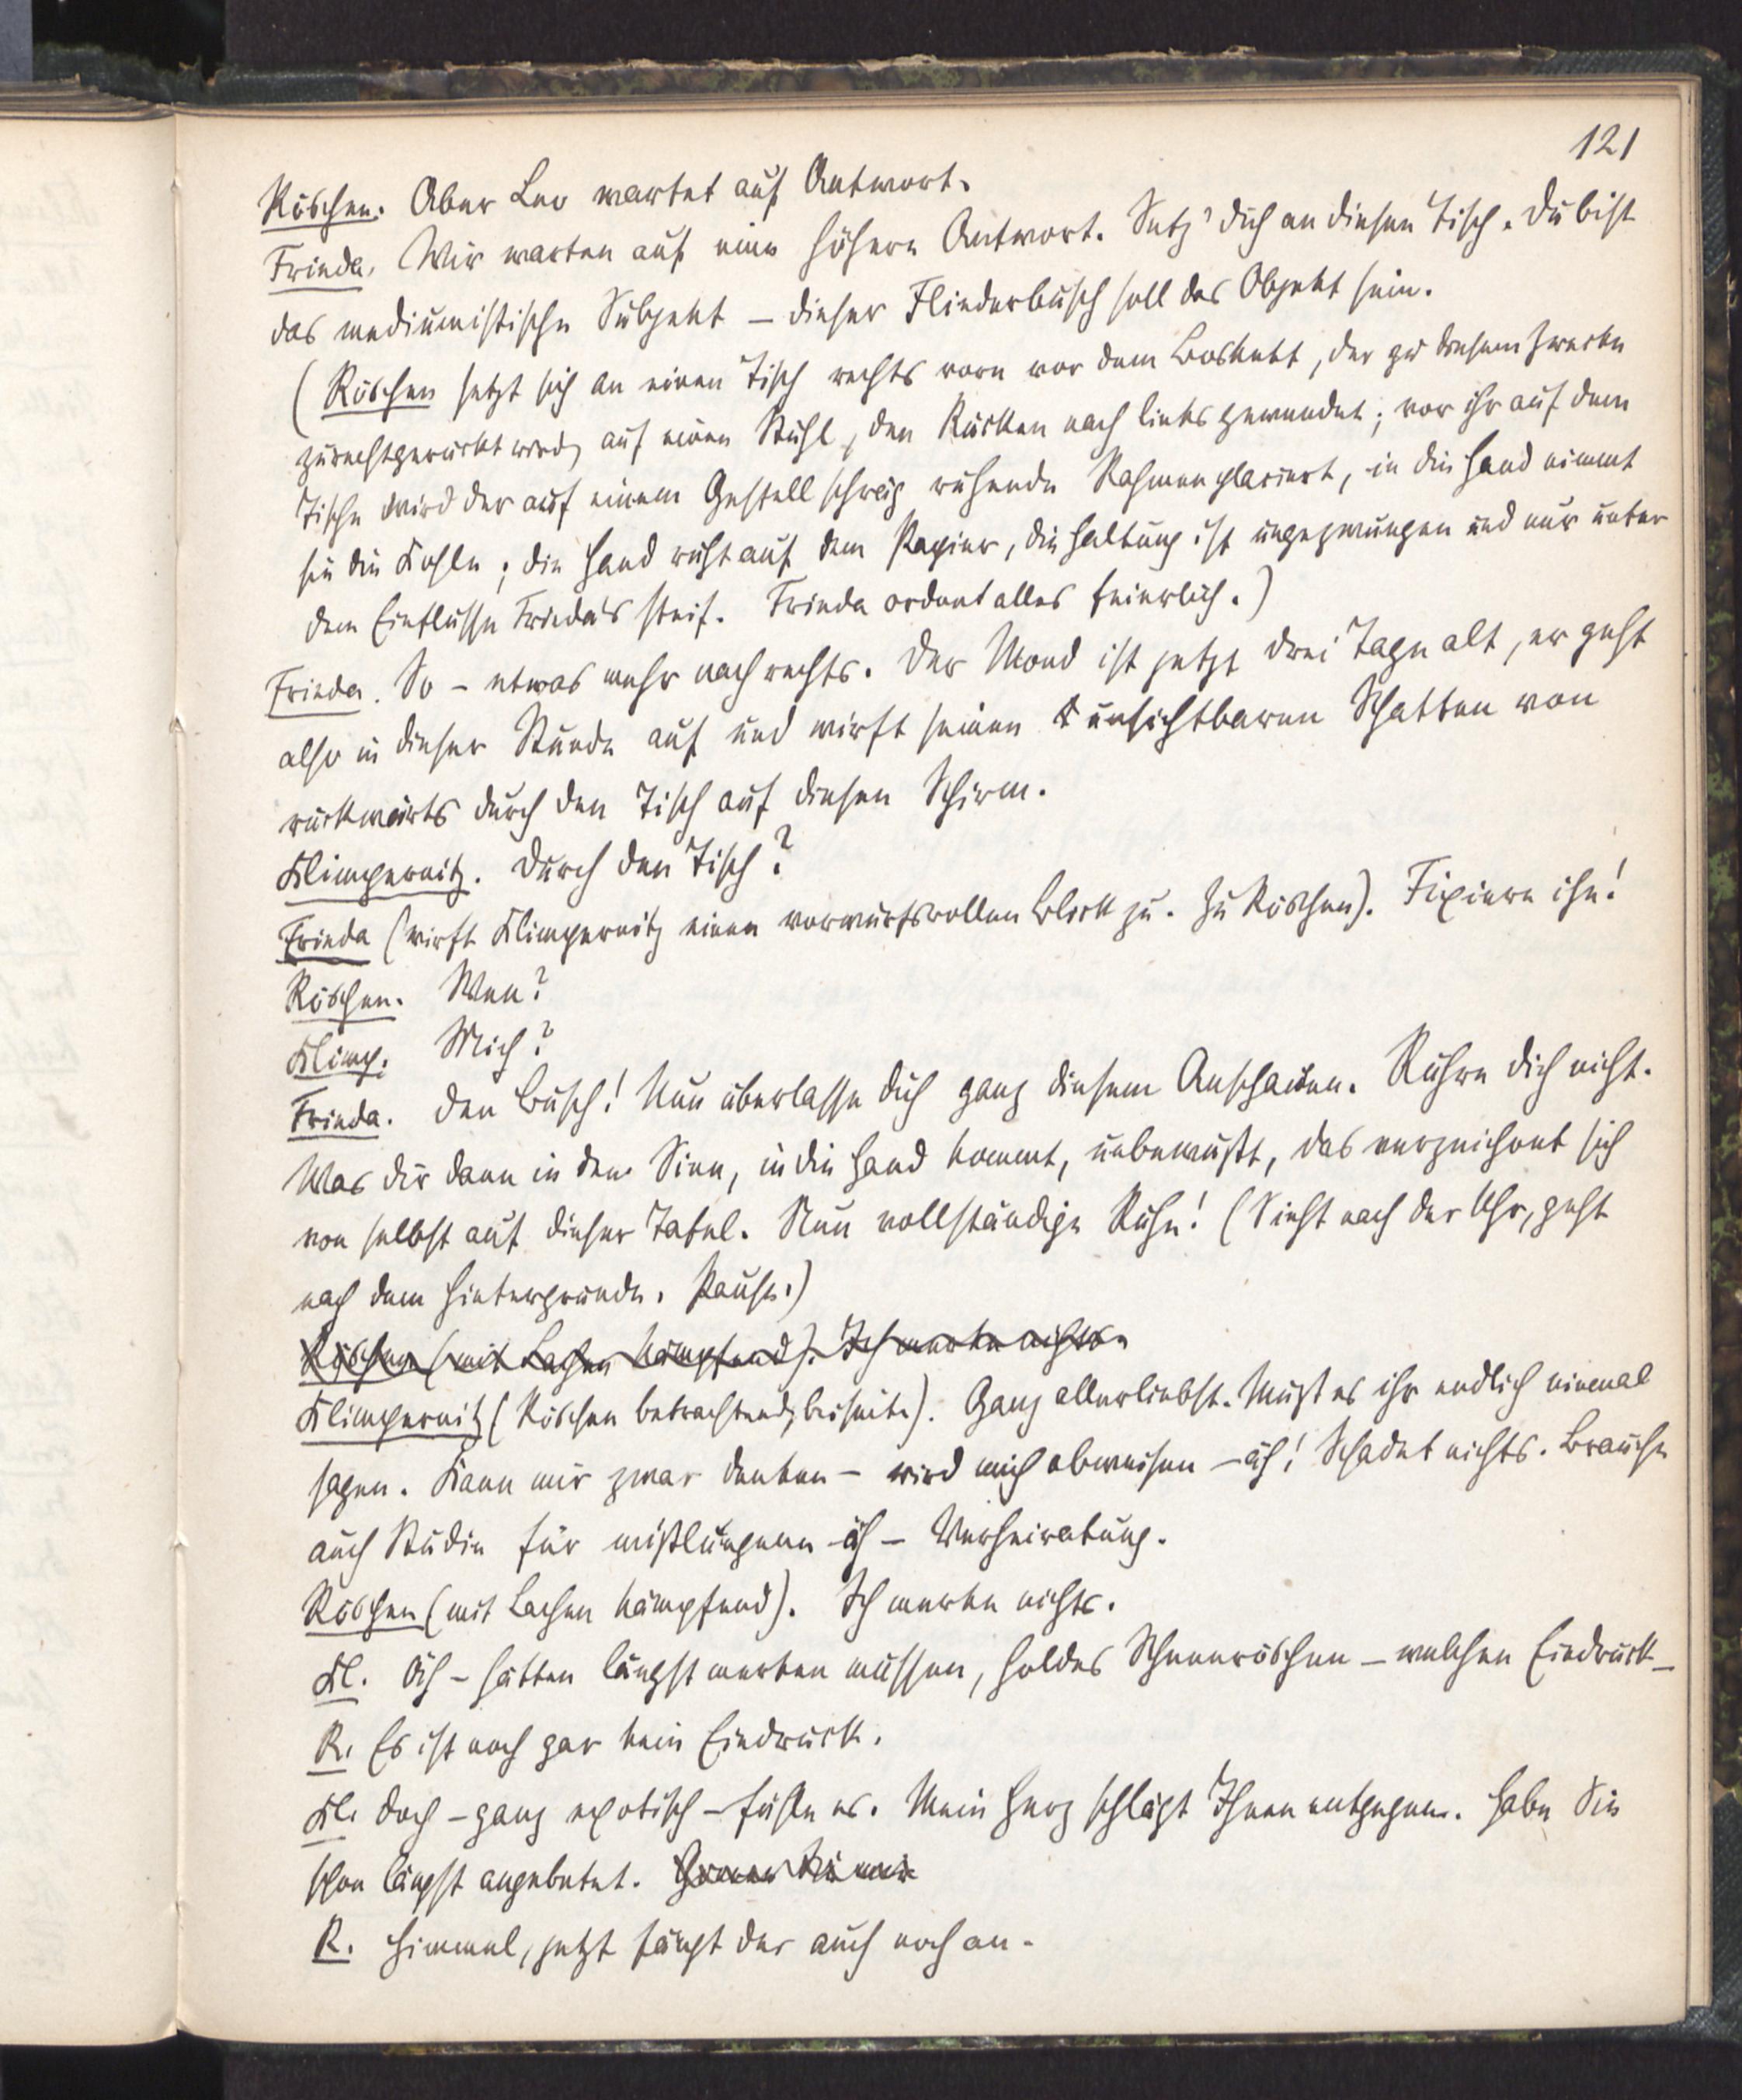 121
Röschen. Aber Leo wartet auf Antwort.
Frieda. Wir warten auf eine höhere Antwort. Setz' dich an diesen Tisch. Du bist
das mediumistische Subjekt – dieser Fliederbusch soll das Objekt sein.
(Röschen setzt sich an einen Tisch rechts vorn vor dem Boskett, der zu diesem Zwecke
zurechtgerückt wird, auf einen Stuhl, den Rücken nach links gewendet; vor ihr auf dem
Tische wird der auf einem Gestell schräg ruhende Rahmen placiert, in die Hand nimmt
sie die Kohle; die Hand ruht auf dem Papier, die Haltung ist ungezwungen und nur unter
dem Einflusse Frieda's steif. Frieda ordnet alles feierlich.)
Frieda. So – etwas mehr nach rechts. Der Mond ist jetzt drei Tage alt, er geht
also in dieser Stunde auf und wirft seinen unsichtbaren Schatten von
rückwärts durch den Tisch auf diesen Schirm.
Klimpernitz. Durch den Tisch?
Frieda (wirft Klimpernitz einen vorwurfsvollen Blick zu. Zu Röschen). Fixiere ihn!
Röschen. Wen?
Klimp. Mich?
Frieda. Den Busch! Nun überlasse dich ganz diesem Anschauen. Rühre dich nicht.
Was dir dann in den Sinn, in die Hand kommt, unbewußt, das verzeichnet sich
von selbst auf dieser Tafel. Nun vollständige Ruhe! (Sieht nach der Uhr, geht
nach dem Hintergrunde. Pause.)
Röschen (mit Lachen kämpfend). Ich merke nichts.
Klimpernitz (Röschen betrachtend, beiseite). Ganz allerliebst. Mußt es ihr endlich einmal
sagen. Kann mir zwar denken – wird mich abweisen – äh! Schadet nichts. Brauche
auch Studie für mißlungene – äh – Verheiratung.
Röschen (mit Lachen kämpfend). Ich merke nichts.
Kl. Äh – hätten längst merken müssen, holdes Schneeröschen – welchen Eindruck –
R. Es ist noch gar kein Eindruck.
Kl. Doch – ganz exotisch – fühle es. Mein Herz schlägt Ihnen entgegen. Habe Sie
schon längst angebetet.
R. Himmel, jetzt fängt der auch noch an.